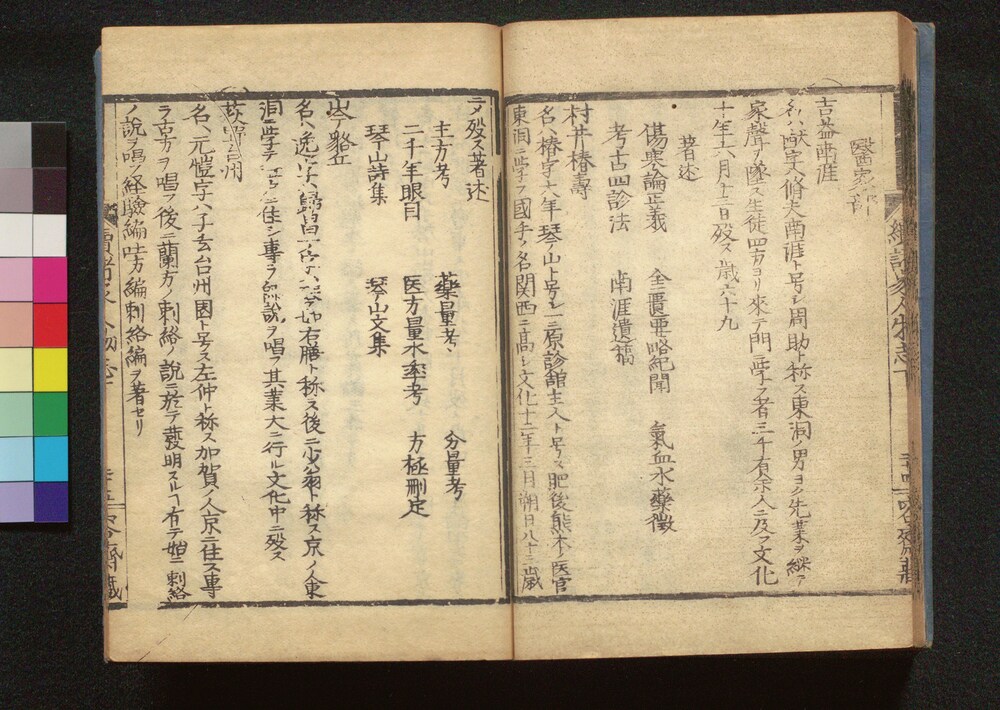 醫家部
吉益南涯
名ハ猷字ハ脩夫南涯ト号シ周助ト称ス東洞ノ男ヨク先業ヲ継テ
家聲ヲ墜ス生徒四方ヨリ來テ門ニ学フ者三千有余人ニ及フ文化
十年六月十三日歿ス歳六十九
著述
傷寒論正義 金匱要略紀聞 氣血水藥徴
考古四診法 南涯遺稿
村井椿壽
名ハ椿字大年琴山ト号シ一ニ原診館主人ト号ス肥後熊本ノ医官
東洞ニ学フ國手ノ名関西ニ高シ文化十二年三月朔日八十三歳
ニメ歿ス著述
主方考 藥量考 分量考
二千年眼目 医方量水率考 方極刪定
琴山詩集 琴山文集
岑貉丘
名ハ逸字ハ 右膳ト称ス後ニ少翁ト称ス京ノ人東
洞ニ学テ 住シ專ラ 説ヲ唱フ其業大ニ行ル文化中ニ歿ス
荻野台州
名ハ元愷字ハ子玄台州園ト号ス左仲ト称ス加賀ノ人京ニ住ス專
ラ古方ヲ唱フ後ニ蘭方ノ刺絡ノ説ニ於テ發明スルヿ有テ始ニ刺絡
ノ説ヲ唱ヘ経驗編吐方編刺絡編ヲ著セリ